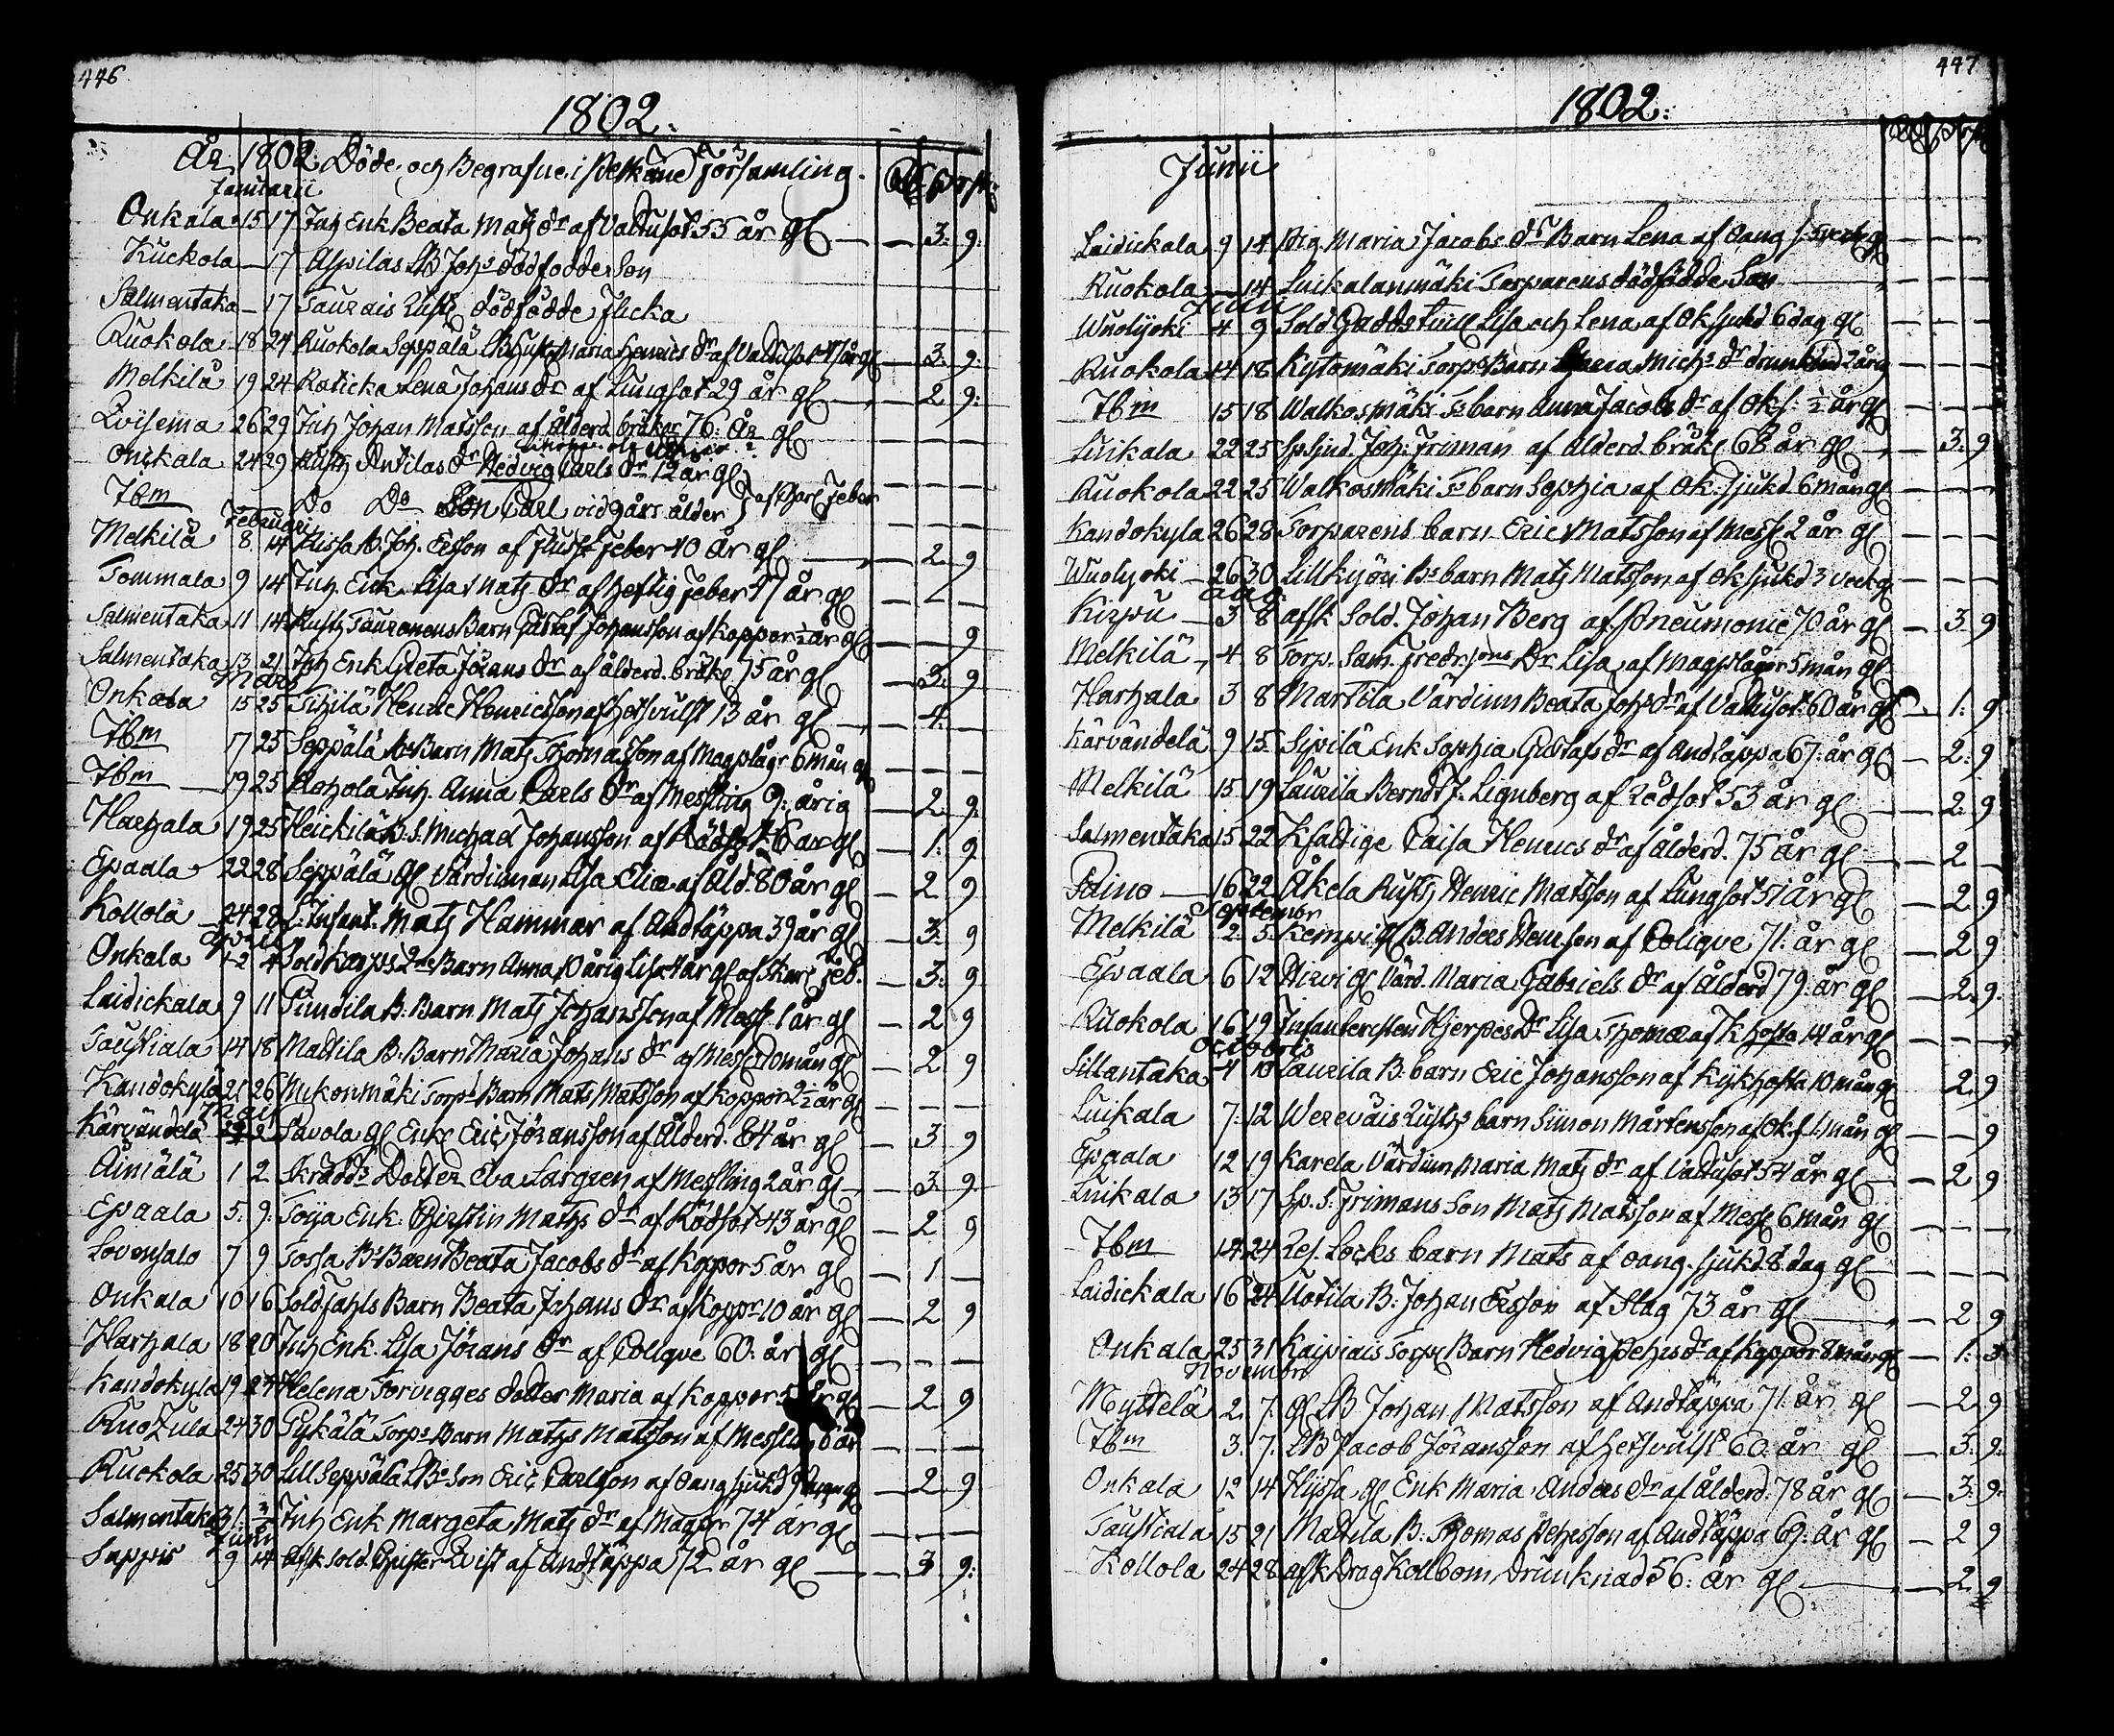 446
1802.
År 1802 Döde och Begrafne i Pelkäne Församling.
Januarii
Onkala 15 17 Inh Enk Beata Mats dr af Vattusot 55 år gl — 3. 9.
Kuckola — 17 Alpilas LB Johs dödfödde Son
Salmentaka — 17 Taurais Rusth dödfödde flicka
Ruokola 18 24 Ruokola Seppälä Maria Henrics dr af Vattusot år gl — 3. 9.
Melkilä 19 24 Raticka Lena Johans dr af Lungsot 29 år gl — 2 9.
Qvisema 26 29 Inh Johan Matsson af Ålderd. bräkor 76: År gl
Onkala 24 29 Rusth Antilas dr Hedvig Carls dr 12 år gl — — —
Ibm Do Do Son Carl vid 9 års ålder } af Skarl Feber — — —
Februari
Melkilä 8 14 Kissa B. Joh. Ersson af fluss feber 40 år gl — 2 9
Tommala 9 14 Inh Enk Lisa Mats dr af heftig feber 47 år gl — — —
Salmentaka 11 14 Rusth Tauronens Barn Gustaf Johansson af koppor ½ år gl — — 9
Salmentaka 13 21 Inh Enk Greta Jörans dr af ålderd. bräkl 75 år gl — 3. 9
Mars
Onkala 15 25 Tihilä Henric Henricsson af hetsvulst 13 år gl — 4.
Ibm 17 25 Seppälä Bs Barn Mats Thomasson af Magplågr 6 mån gl — — —
Ibm — 19 25 Roholä Inh. Anna Carls dr af Messling 9: årig — 2. 9.
Harhala 19 25 Heickilä B. S. Michael Johansson af Rödsot 6 år gl — 1: 9
Epaala 22 28 Seppälä Gl Värdinnan Lisa Eliæ af Åld. 80 år gl — 2 9
Kollola 24 28 Infant. Mats Hammar af Andtäppa 39 år gl — 3. 9
April
Onkala 2 4 Sold Karps 2ne Barn Anna 10 årig Lisa 4 år gl af Skarl feb. — 3. 9
Laidickala 9 11 Pundila B. Barn Mats Johansson af Messl. 1 år gl — 2 9
Taustiala 14 18 Mattila B. Barn Maria Johans dr af Messl. 10 mån gl — 2 9
Kandokylä 21 26 Mukonmäki Torps Barn Mats Matsson af koppor 2½ år gl — — —
Maij
Kärvändelä 2 Savola gl Enkl Eric Jöransson af Ålderd. 84 år gl — 3 9
Äimälä 1 2 Skrädds Dotter Eva Largren af Messling 2 år gl — 3. 9.
Epaala 5. 9. Toija Enk. Christin Mats dr af Rödsot 43 år gl — 2 9
Lovensalo 7 9 Tossa Bs Barn Beata Jacobs dr af koppor 5 år gl — 1 —
Onkala 10 16 Sold Fahls Barn Beata Johans dr af koppr 10 år gl — 2 9
Harhala 18 20 Inh Enk. Lisa Jörans dr af Colique 60: år gl — — —
Kandokyla 19 27 Helena Torvigges dotter Maria af koppor 5 år gl — 2 9
24 30 Pykälä Torps Barn Matts Matsson af Messling 6 år — — —
Ruckola 25 30 Lill Seppälä LBs Son Eric Carlsson af Oang sjukd — 2 9
Salmentaka 31. Inh Enk Margeta Mats dr af Magpl. 74 år gl — — —
Junii
Sappis 9 14 Afsk Sold Christer Qvist af Andtäppa 72 år gl — 3 9.
447
1802.
Junii
Laidickala 9 14 Pig. Maria Jacobs drs Barn Lena af Oang sj. veck gl — — —
Ruokola — 14 Luikalanmäki Torparens dödfödde Son — — —
Julii
Wuolijoki 4 9 Sold Gadds tvill Lisa och Lena af Ok sjukd 6 dag gl — — —
Ruokola 14 18 Kystomäki Torps Barn Maria Michs dr drunknad 2 årig — — —
Ibm 15 18 Walkosmäki Ts barn Anna Jacobs dr af Ok s. ½ år gl — — —
Luikala 22 25 Spsjud. Joh: Friman af Ålderd. bräkl 68 år gl — 3. 9
Ruokola 22 25 Walkosmäki Ts barn Sophia af Ok: sjukd 6 mån gl — — —
Kandokyla 26 28 Torparens barn Eric Matsson af Messl 2 år gl — — —
Wuolyoki — 26 30 Lillkyöri Bs barn Mats Matsson af Ok sjukd 3 veck gl — — —
Aug.
Kirpu — 3 8 afsk Sold. Johan Berg af Pneumonie 70 år gl — 3. 9
Melkilä, 4 8 Torp. Sam. Fredrsons Dr Lisa af Magplågor 5 mån gl
Harhala 3 8 Marttila Värdinn Beata Johs dr af Vattusot 60 år gl — 1: 9
Kärvändelä 9 15 Sipilä Enk Sophia Gustafs dr af Andtäppa 67: år gl — 2: 9
Melkilä 15 19 Laurila Berndt J. Lignberg af rödsot 53 år gl — 2. 9
Salmentaka 15 22 Ksattige Caisa Henrics dr af ålderd. 75 år gl — 2 —
Päino — 16 22 Äkela Rusth Henric Matsson af Lungsot 51 år gl — 2 9
Septembr
Melkilä 2. 5. Kempi gl B. Anders Henrsson af Colique 71: år gl — 2 9
Epaala 6 12 Hirvi gl Värd. Maria Gabriels dr af Ålderd 79 år gl — 2. 9.
Ruokola 16 19 Infanteristen Hjerpes Dr Lisa Thomæ af K hosta 14 år gl — — —
Octobris
Sillantaka 4 10 Laurila B. barn Eric Johansson af Kikhosta 10 mån gl 2. 9
Luikala 7. 12 Werevais Rusths barn Simon Mårtensson af Ok s. 1 mån gl — — 9
Epaala 12 19 Karela Värdinn Maria Mats dr af Vattusot 54 år gl — 2 9
Luikala 13 17 Sp. S. Frimans Son Mats Matsson af Messl 6 mån gl — — —
Ibm 14 24 Res. Locks barn Mats af oang. sjukd. 8 dag gl — — —
Laidickala 16 24 Uotila B. Johan Ersson af Slag 73 år gl — 2 9
Onkala 25 31 Kaipiais Torps Barn Hedvig Pehrs dr af Koppor 8 mån gl — 1: 3
Novembr
Myttelä 2. 7. gl LB Johan Matsson af Andtäppa 71. år gl — 2 9
Ibm 3. 7. LB Jacob Jöransson af hetsvulst 60. år gl — 3. 9.
Onkala 12 14 Hyssa gl Enk Maria Anders dr af Ålderd. 78 år gl — 3. 9.
Taustiala 15 21 Mattila B. Thomas Pehrsson af Andtäppa 69. år gl — 2 9
Kollola 24 28 afsk Drag Kolbom Drunknad 56: år gl — 2. 9